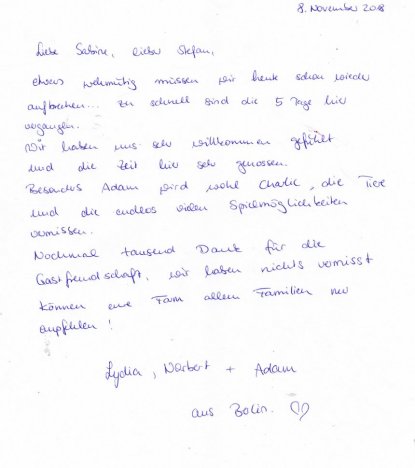 8. November 2018
Liebe Sabine, lieber Stefan,
etwas wehmütig müssen wir heute schon wieder
aufbrechen... zu schnell sind die 5 Tage hier
vergangen.
Wir haben uns sehr willkommen gefühlt
und die Zeit hier sehr genossen.
Besonders Adam wird wohl Charlie, die Tiere
und die endlos vielen Spielmöglichkeiten
vermissen.
Nochmal tausend Dank für die
Gastfreundschaft, wir haben nichts vermisst
können eure Farm allen Familien nur
empfehlen!
Lydia, Norbert + Adam
aus Berlin. ♡